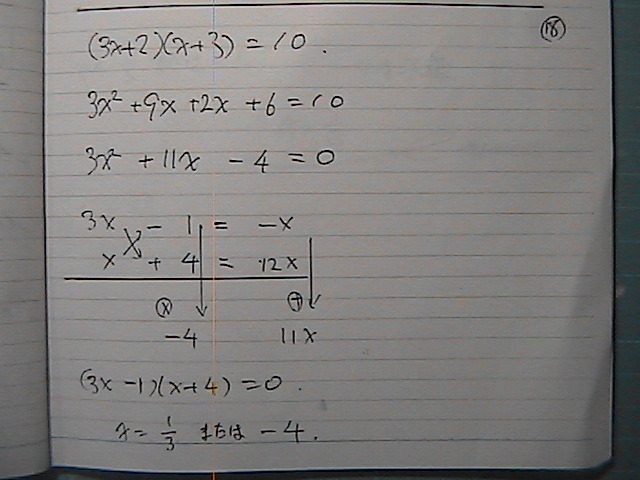 ⑱
(3x+2)(x+3) = 10.
3x² + 9x + 2x + 6 = 10
3x² + 11x - 4 = 0
3x - 1 = -x
x + 4 = 12x
ⓧ ⊕
-4 11x
(3x -1)(x+4) = 0.
x = 1/3 または -4.